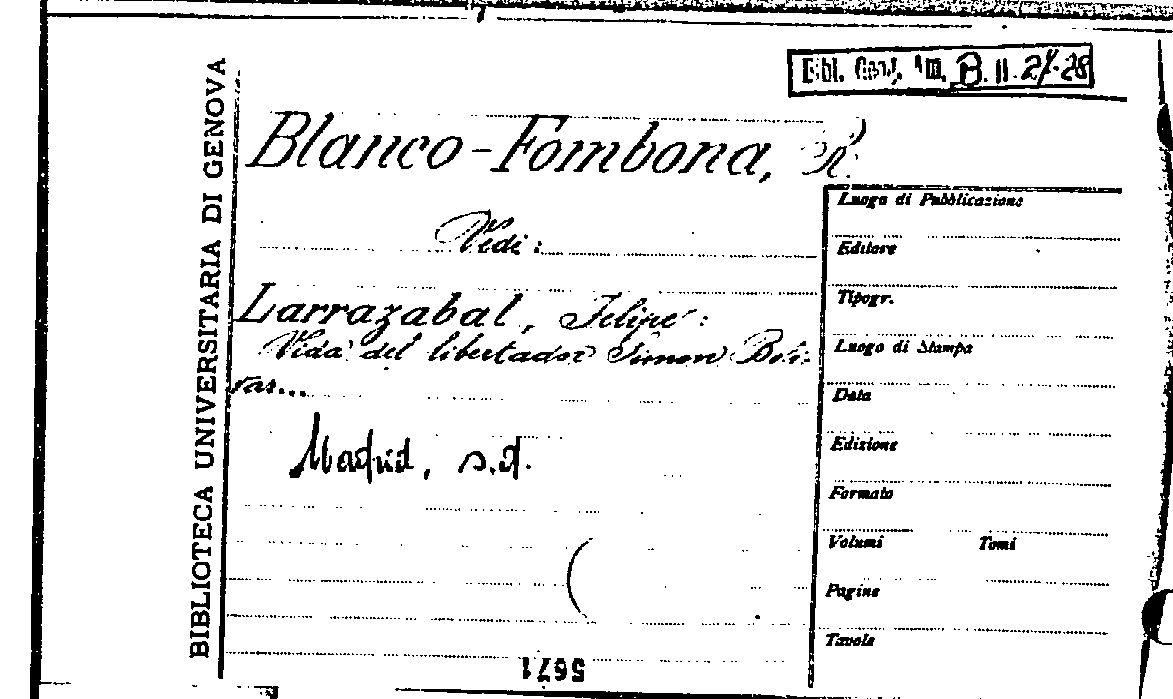 BIBLIOTECA UNIVERSITARIA DI GENOVA
Bibl. B. II. 24-28
Blanco-Fombona, R.
Vedi:
Larrazabal, Felipe:
Vida del libertador Simon Boli-
var...
Madrid, s.d.
Luogo di Pubblicazione
Editore
Tipogr.
Luogo di Stampa
Data
Edizione
Formato
Volumi Tomi
Pagine
Tavole
5671